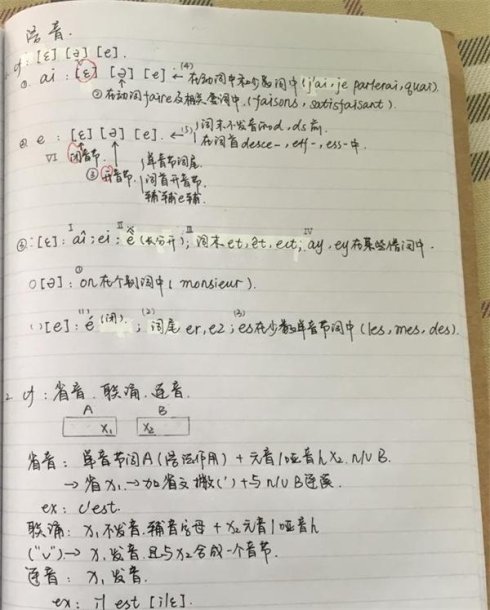 语音.
cf: [ε] [ə] [e].
① ai : [ε] [ə] [e] ← (4) 在动词中和少数词中 (j'ai, je parlerai, quai).
② 在动词faire及相关单词中. (faisons, satisfaisant).
② e : [ε] [ə] [e]. ← (5) 词末不发音的d, ds前
在词首desce-, eff-, ess-中.
VI 闭音节
③ 开音节
单音节词尾.
词首开音节.
辅辅e辅.
③: [ε]: I aî; ei; II ê (长分开); III 词末et, êt, ect; IV ay, ey在某些借词中.
○ [ə]: ① on在个别词中 (monsieur).
[e]: (1) é (闭). ; (2) 词尾er, ez ; (3) es在少数单音节词中 (les, mes, des).
2. cf: 省音. 联诵. 连音.
A B
x₁ x₂
省音: 单音节词A (语法作用) + 元音/哑音h x₂. n/v B.
→ 省x₁. → 加省文撇(') + 与n/v B连读.
ex: c'est.
联诵: x₁不发音. 辅音字母 + x₂元音/哑音h
("∪") → x₁发音. 且与x₂合成一个音节.
连音: x₁发音.
ex: il est [ilε].